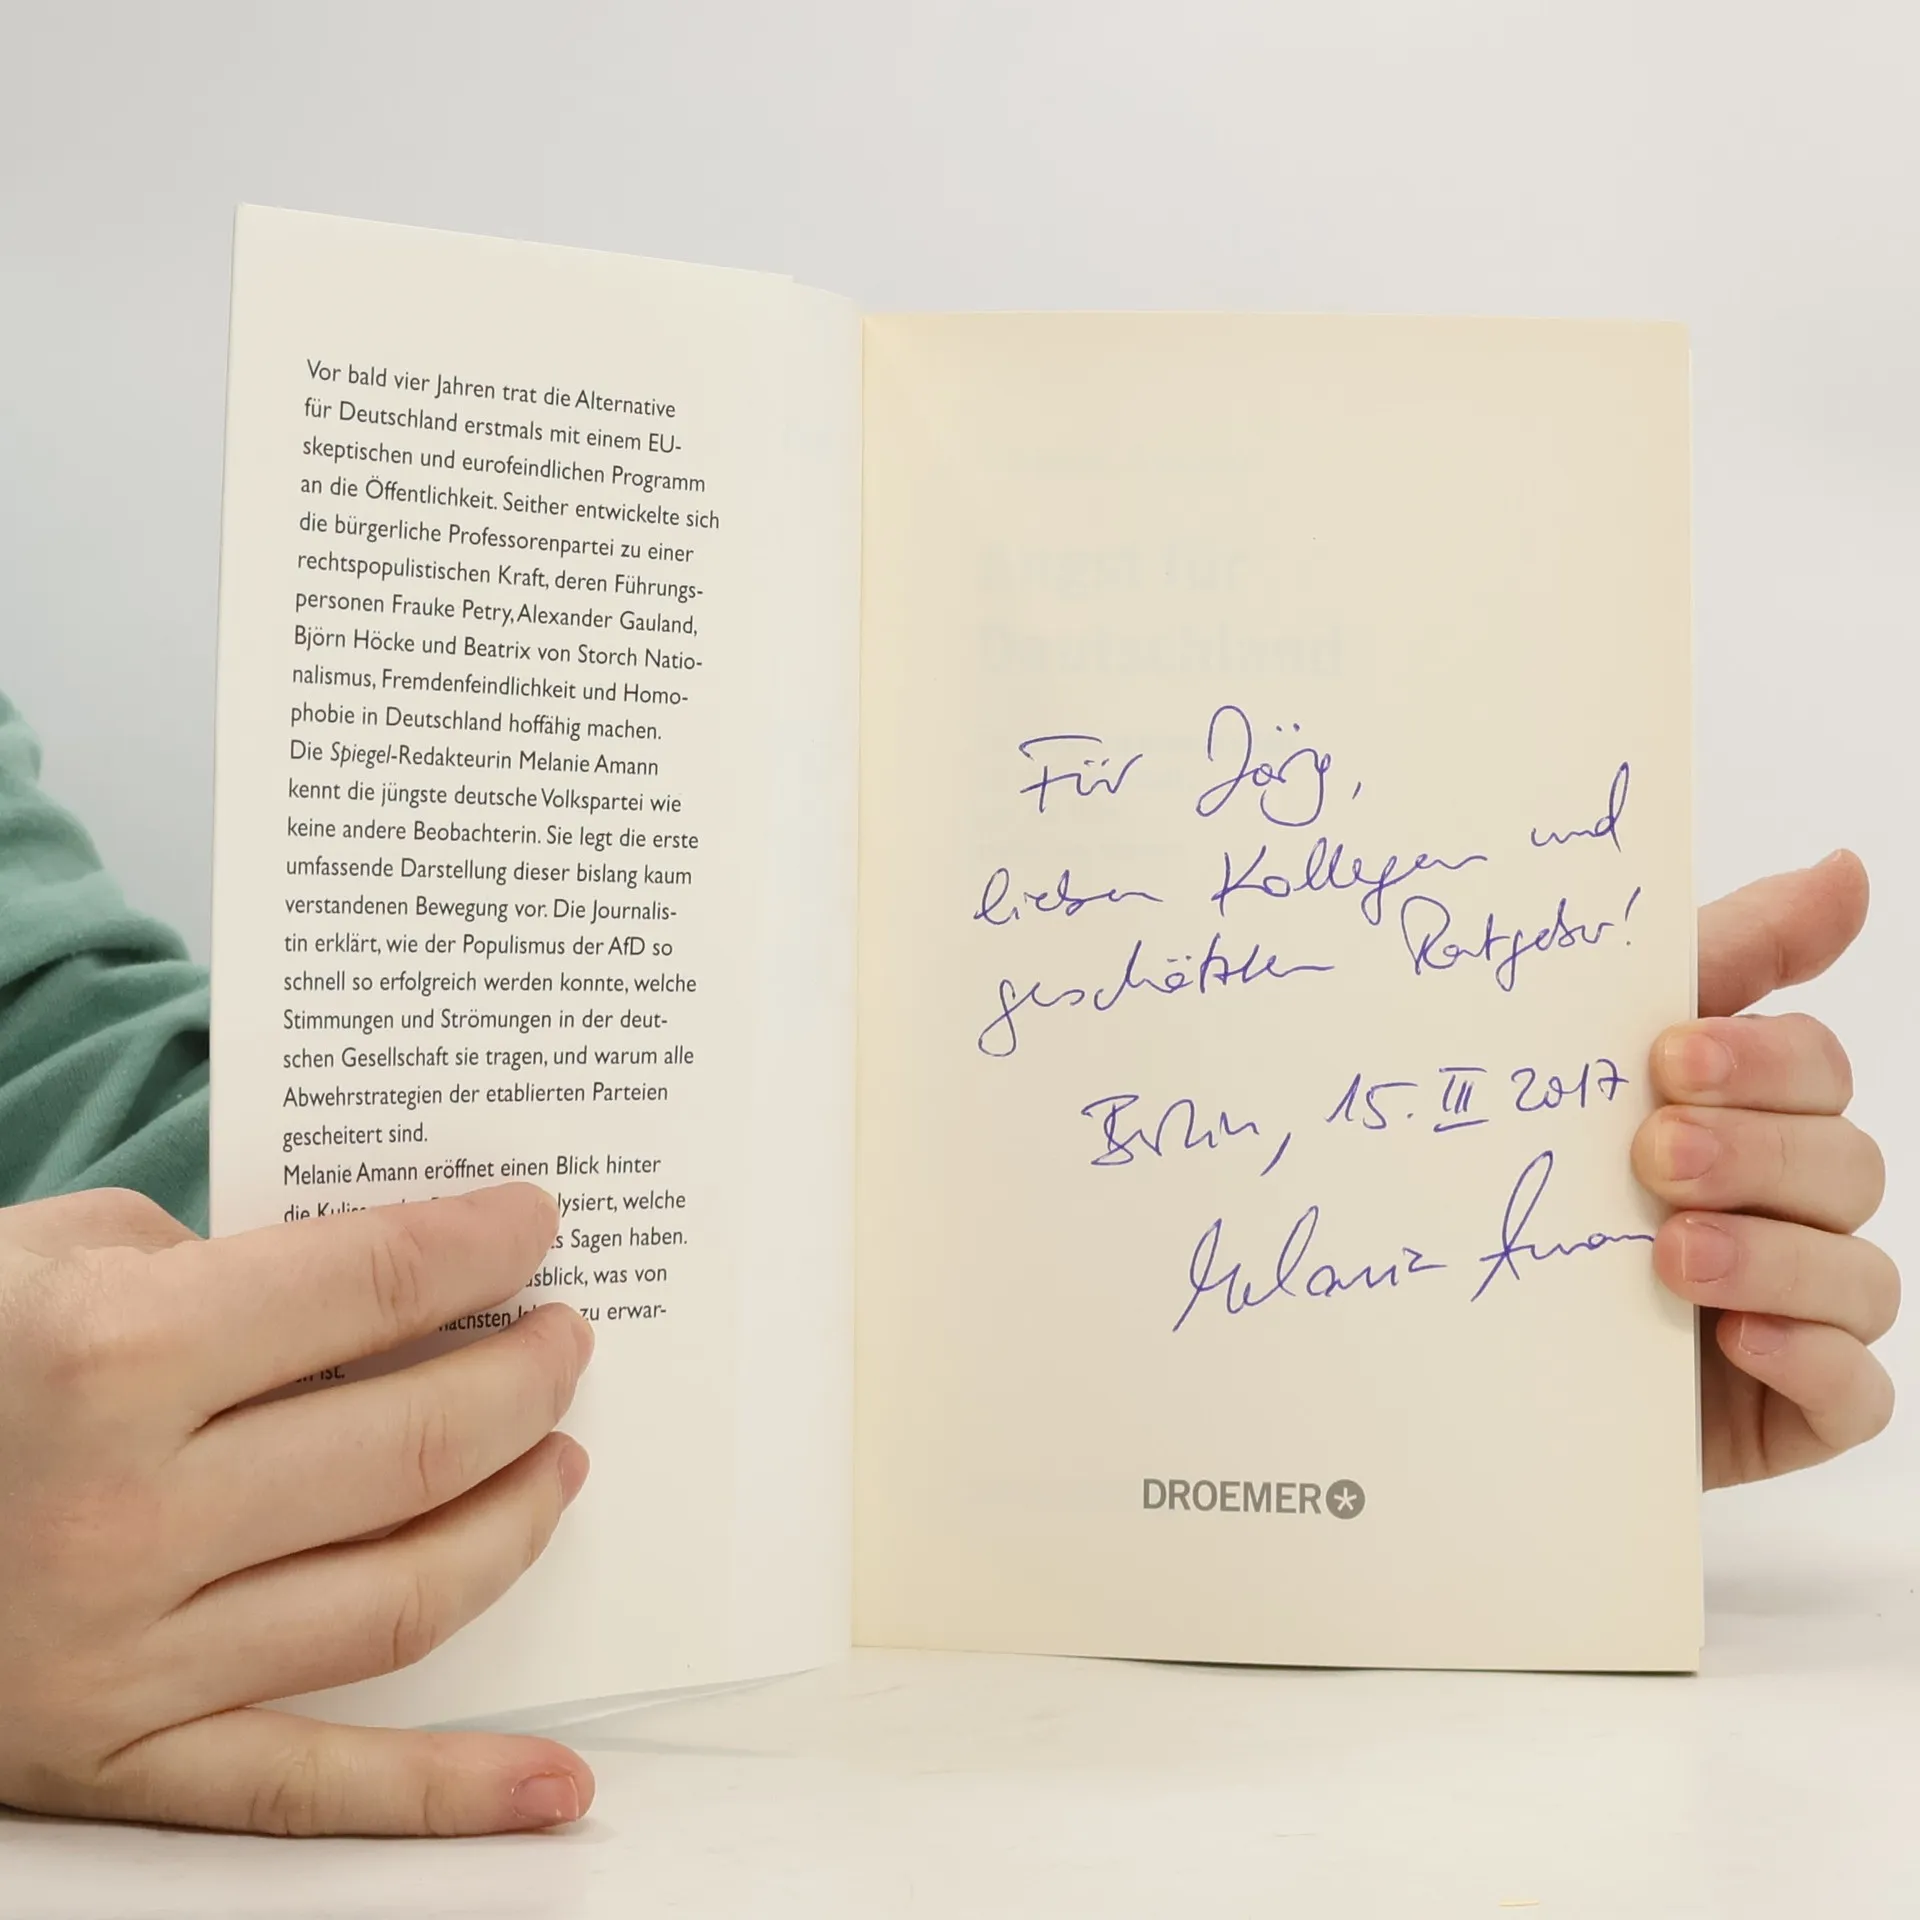 Vor bald vier Jahren trat die Alternative
für Deutschland erstmals mit einem EU-
skeptischen und eurofeindlichen Programm
an die Öffentlichkeit. Seither entwickelte sich
die bürgerliche Professorenpartei zu einer
rechtspopulistischen Kraft, deren Führungs-
personen Frauke Petry, Alexander Gauland,
Björn Höcke und Beatrix von Storch Natio-
nalismus, Fremdenfeindlichkeit und Homo-
phobie in Deutschland hoffähig machen.
Die Spiegel-Redakteurin Melanie Amann
kennt die jüngste deutsche Volkspartei wie
keine andere Beobachterin. Sie legt die erste
umfassende Darstellung dieser bislang kaum
verstandenen Bewegung vor. Die Journalis-
tin erklärt, wie der Populismus der AfD so
schnell so erfolgreich werden konnte, welche
Stimmungen und Strömungen in der deut-
schen Gesellschaft sie tragen, und warum alle
Abwehrstrategien der etablierten Parteien
gescheitert sind.
Melanie Amann eröffnet einen Blick hinter
die welche
Sagen haben.
was von
zu erwar-
ist.
Angst für
Deutschland
Für Jörg,
lieben Kollegen und
geschätzten Ratgeber!
Berlin, 15. III 2017
Melanie Amann
DROEMER